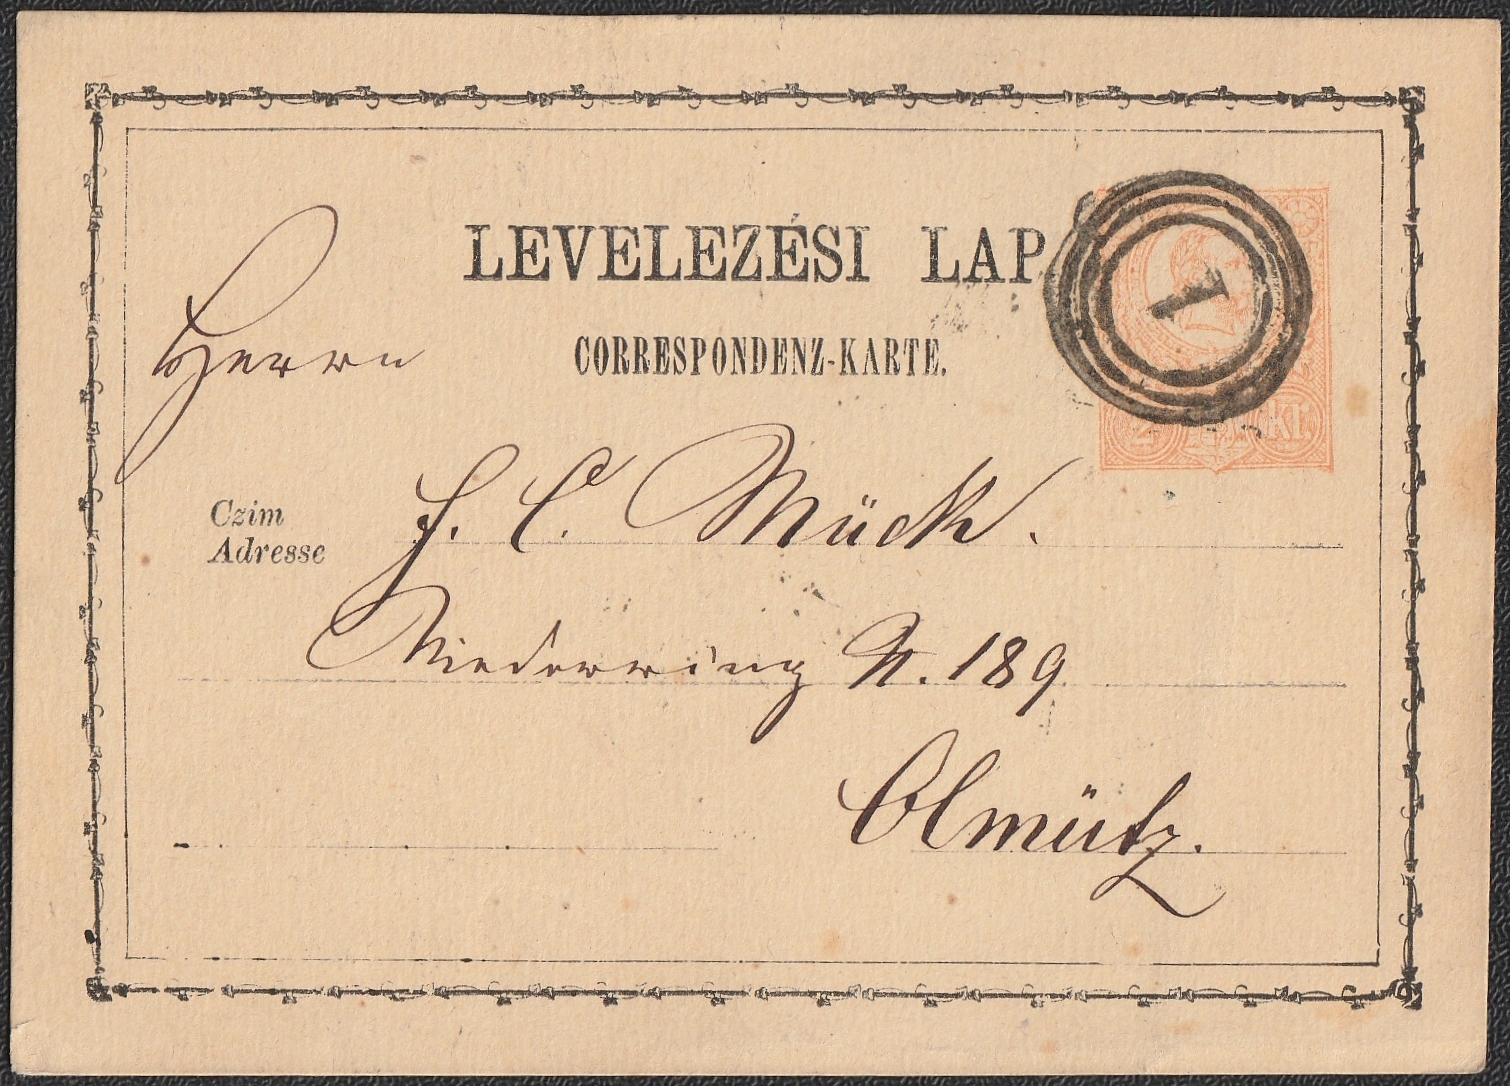 LEVELEZÉSI LAP
CORRESPONDENZ-KARTE.
1
2 kr.
Herrn
Czim
Adresse
J. C. Mück.
Niederring N. 189
Olmütz.